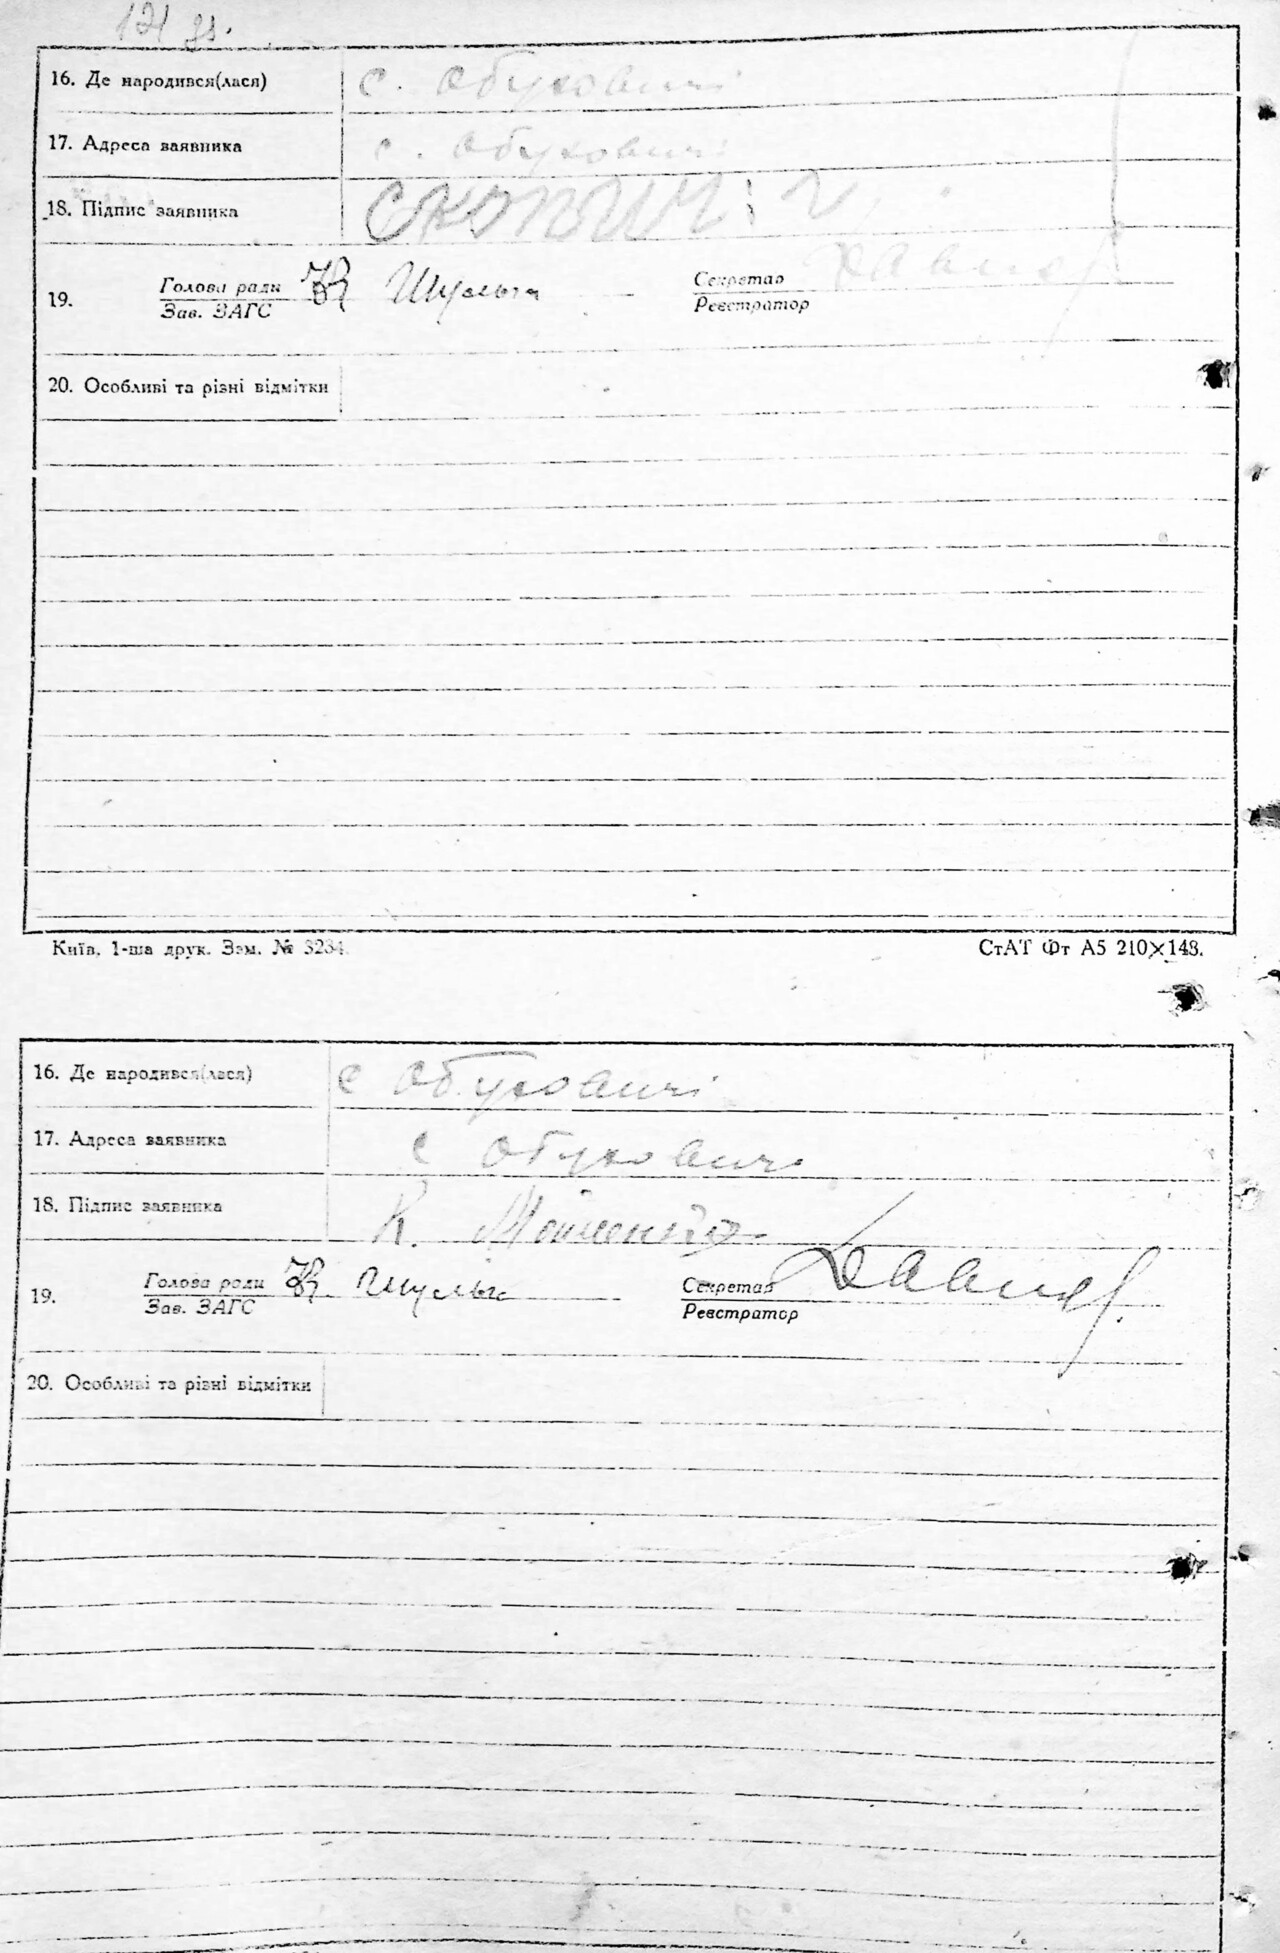 121 зв.
16. Де народився(лася) с. Обуховичі
17. Адреса заявника с. Обуховичі
18. Підпис заявника
19. Голова ради Шульга Секретар
Зав. ЗАГС Реєстратор
20. Особливі та різні відмітки
Київ, 1-ша друк. Зам. № 3234. СтАТ Фт А5 210×148.
16. Де народився(лася) с Обуховичі
17. Адреса заявника с Обуховичі
18. Підпис заявника К.
19. Голова ради Шульга Секретар
Зав. ЗАГС Реєстратор
20. Особливі та різні відмітки